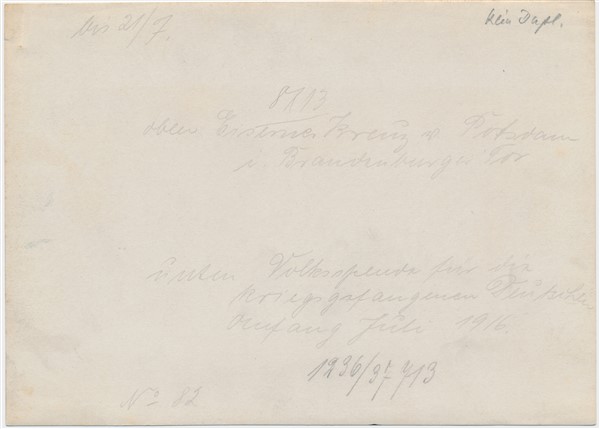 bis 21/7.
Kein Dupl.
8113
oben Eisernes Kreuz v Potsdam
i. Brandenburger Tor
unten Volksspende für die
Kriegsgefangenen Deutschen
Anfang Juli 1916.
1236/37 713
No 82